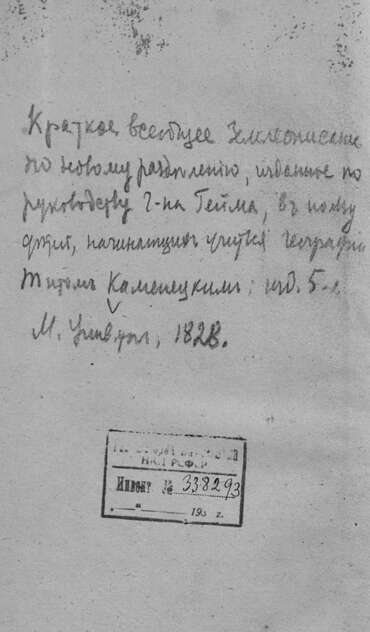 Краткое всеобщее Землеописание
по новому разделению, изданное по
руководству г-на Гейма, въ пользу
детей, начинающихъ учиться географии
Титомъ Каменецкимъ: изд. 5-е
М. Универ. тип., 1828.
НКП РСФСР
Инвент № 338293
193 г.